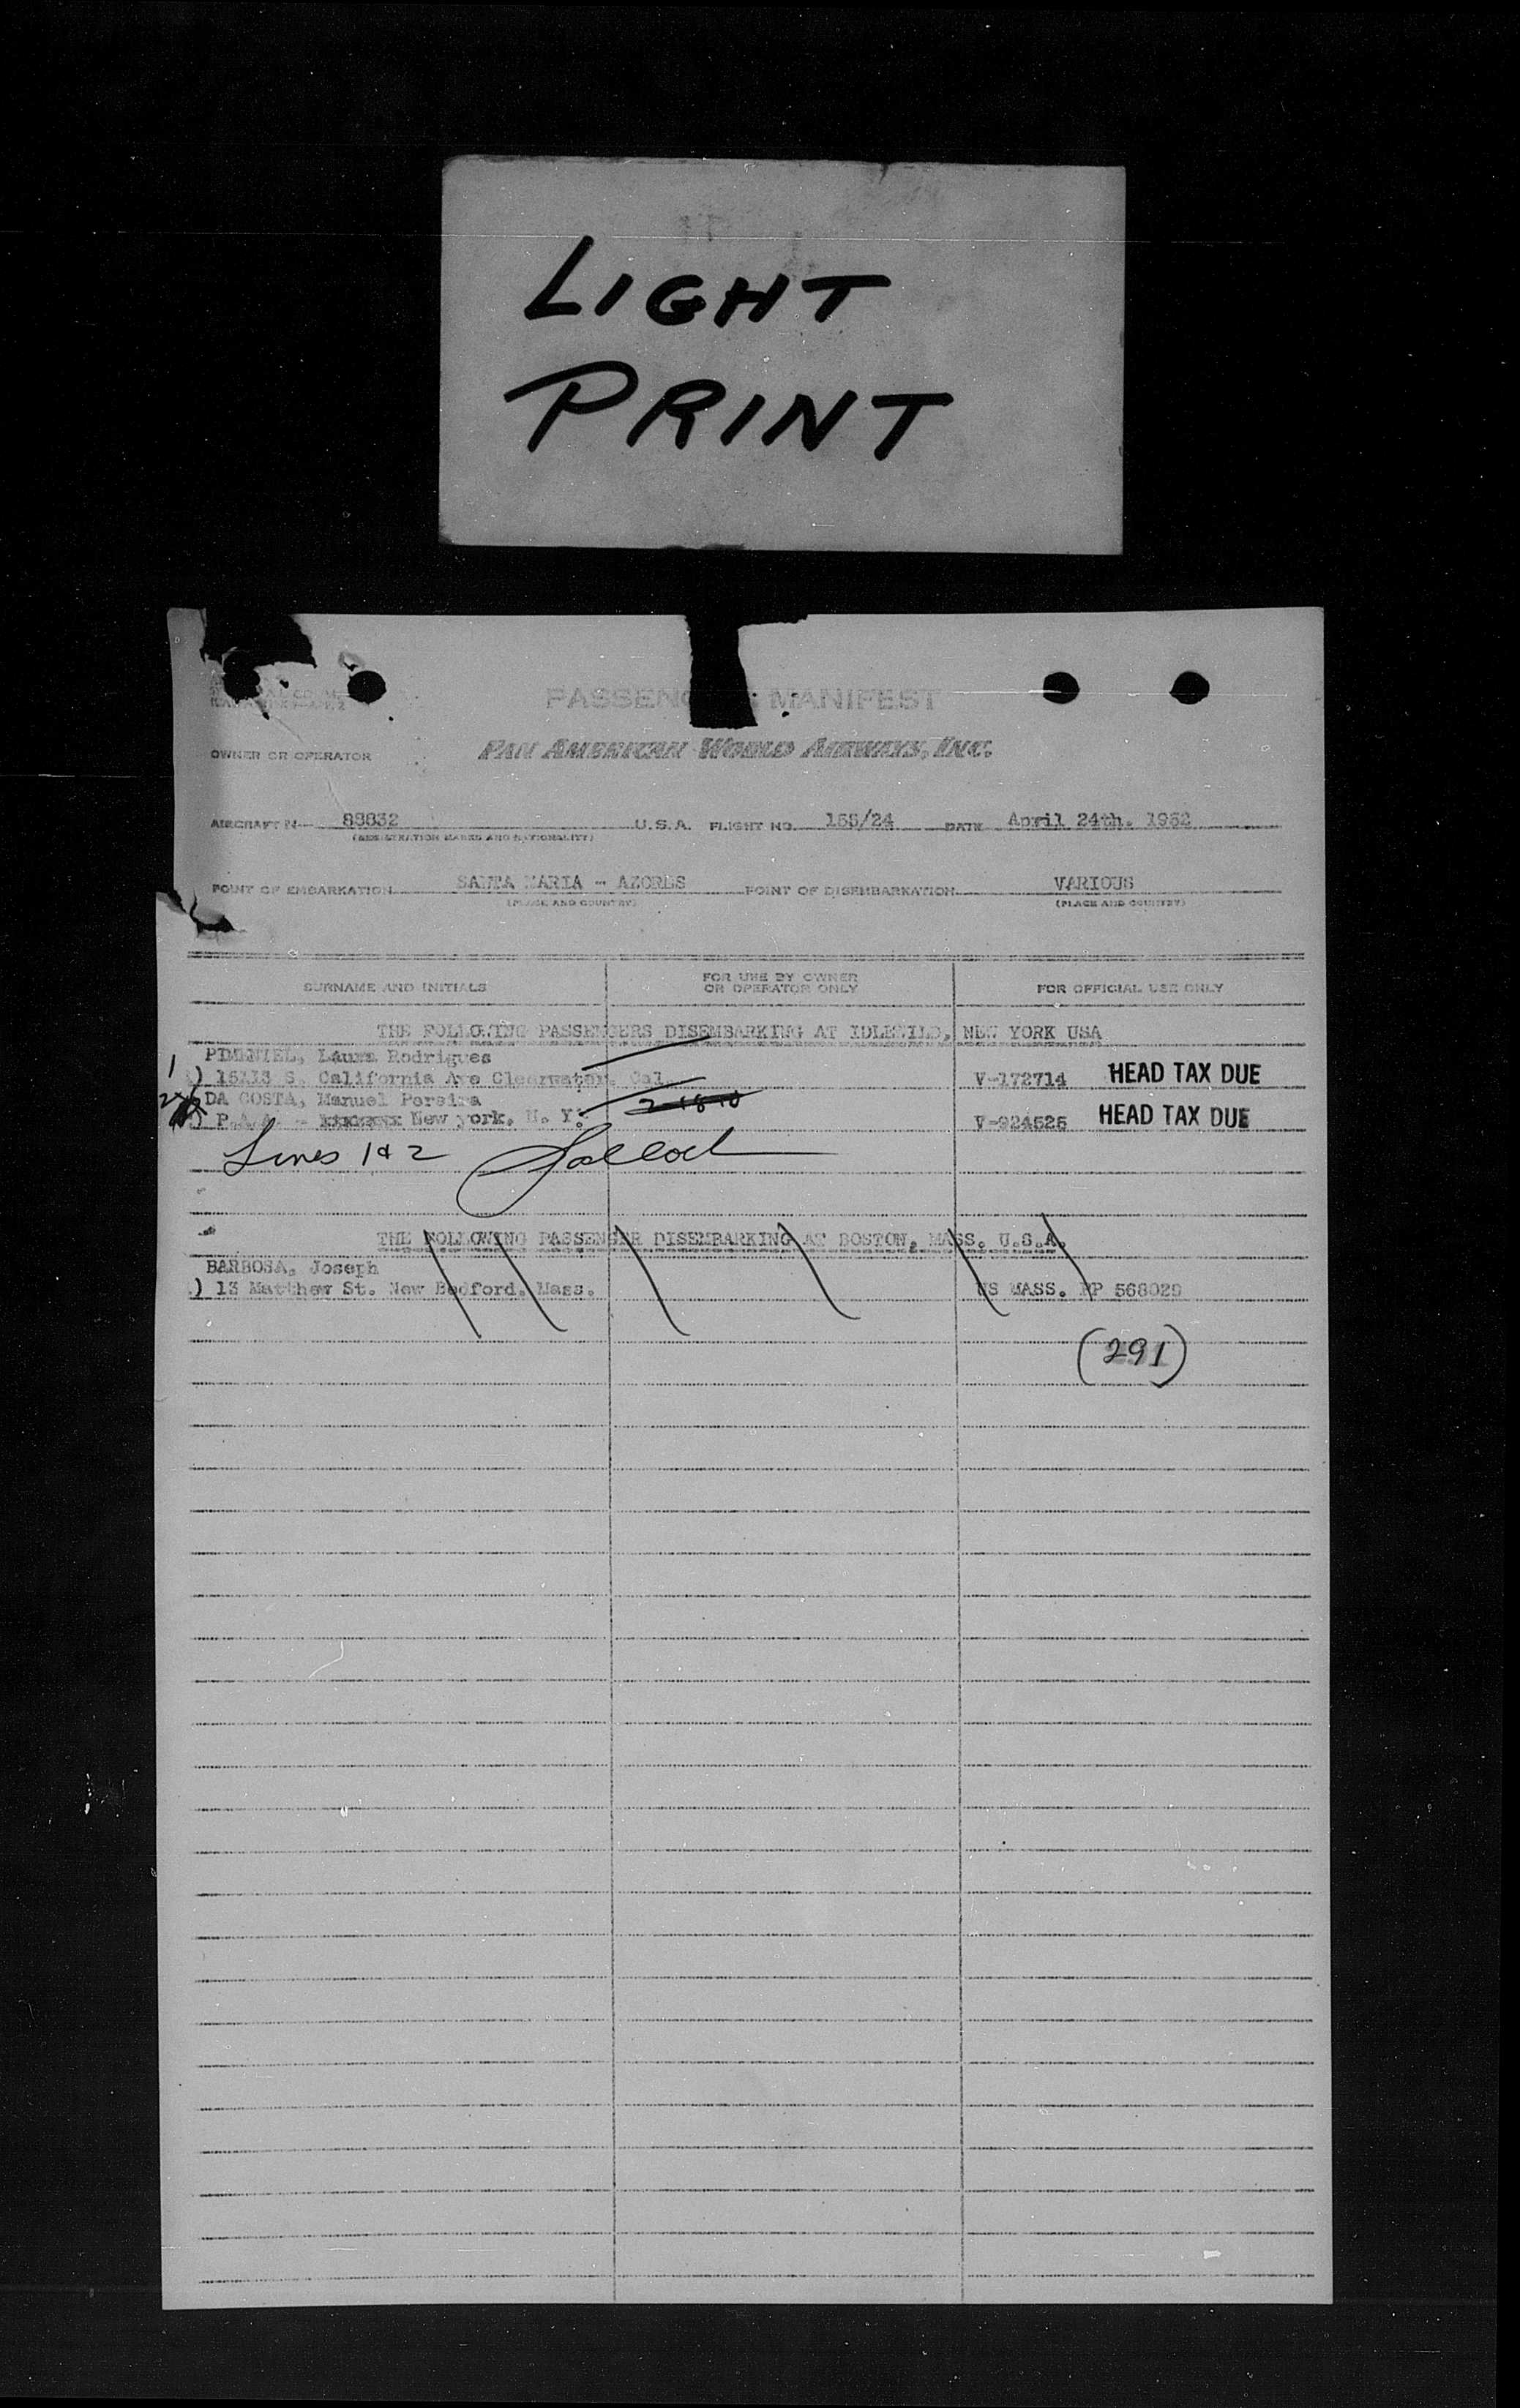 LIGHT
PRINT
PASSENG MANIFEST
OWNER OR OPERATOR PAN AMERICAN WORLD AIRWAYS, INC.
AIRCRAFT N— 88832 U.S.A. FLIGHT NO. 155/24 DATE April 24th. 1952
(REGISTRATION MARKS AND NATIONALITY)
POINT OF EMBARKATION SANTA MARIA - AZORES POINT OF DISEMBARKATION VARIOUS
(PLACE AND COUNTRY) (PLACE AND COUNTRY)
SURNAME AND INITIALS FOR USE BY OWNER OR OPERATOR ONLY FOR OFFICIAL USE ONLY
THE FOLLOWING PASSENGERS DISEMBARKING AT IDLEWILD, NEW YORK USA
1 PIMENTEL, Laura Rodrigues
) 15113 S. California Ave Clearwater, Cal. V-172714 HEAD TAX DUE
2 DA COSTA, Manuel Pereira
) P.A.A. - New york, N. Y. V-924525 HEAD TAX DUE
Lines 1 & 2
THE FOLLOWING PASSENGER DISEMBARKING AT BOSTON, MASS. U.S.A.
BARBOSA, Joseph
) 13 Matthew St. New Bedford, Mass. US MASS. PP 568029
(291)